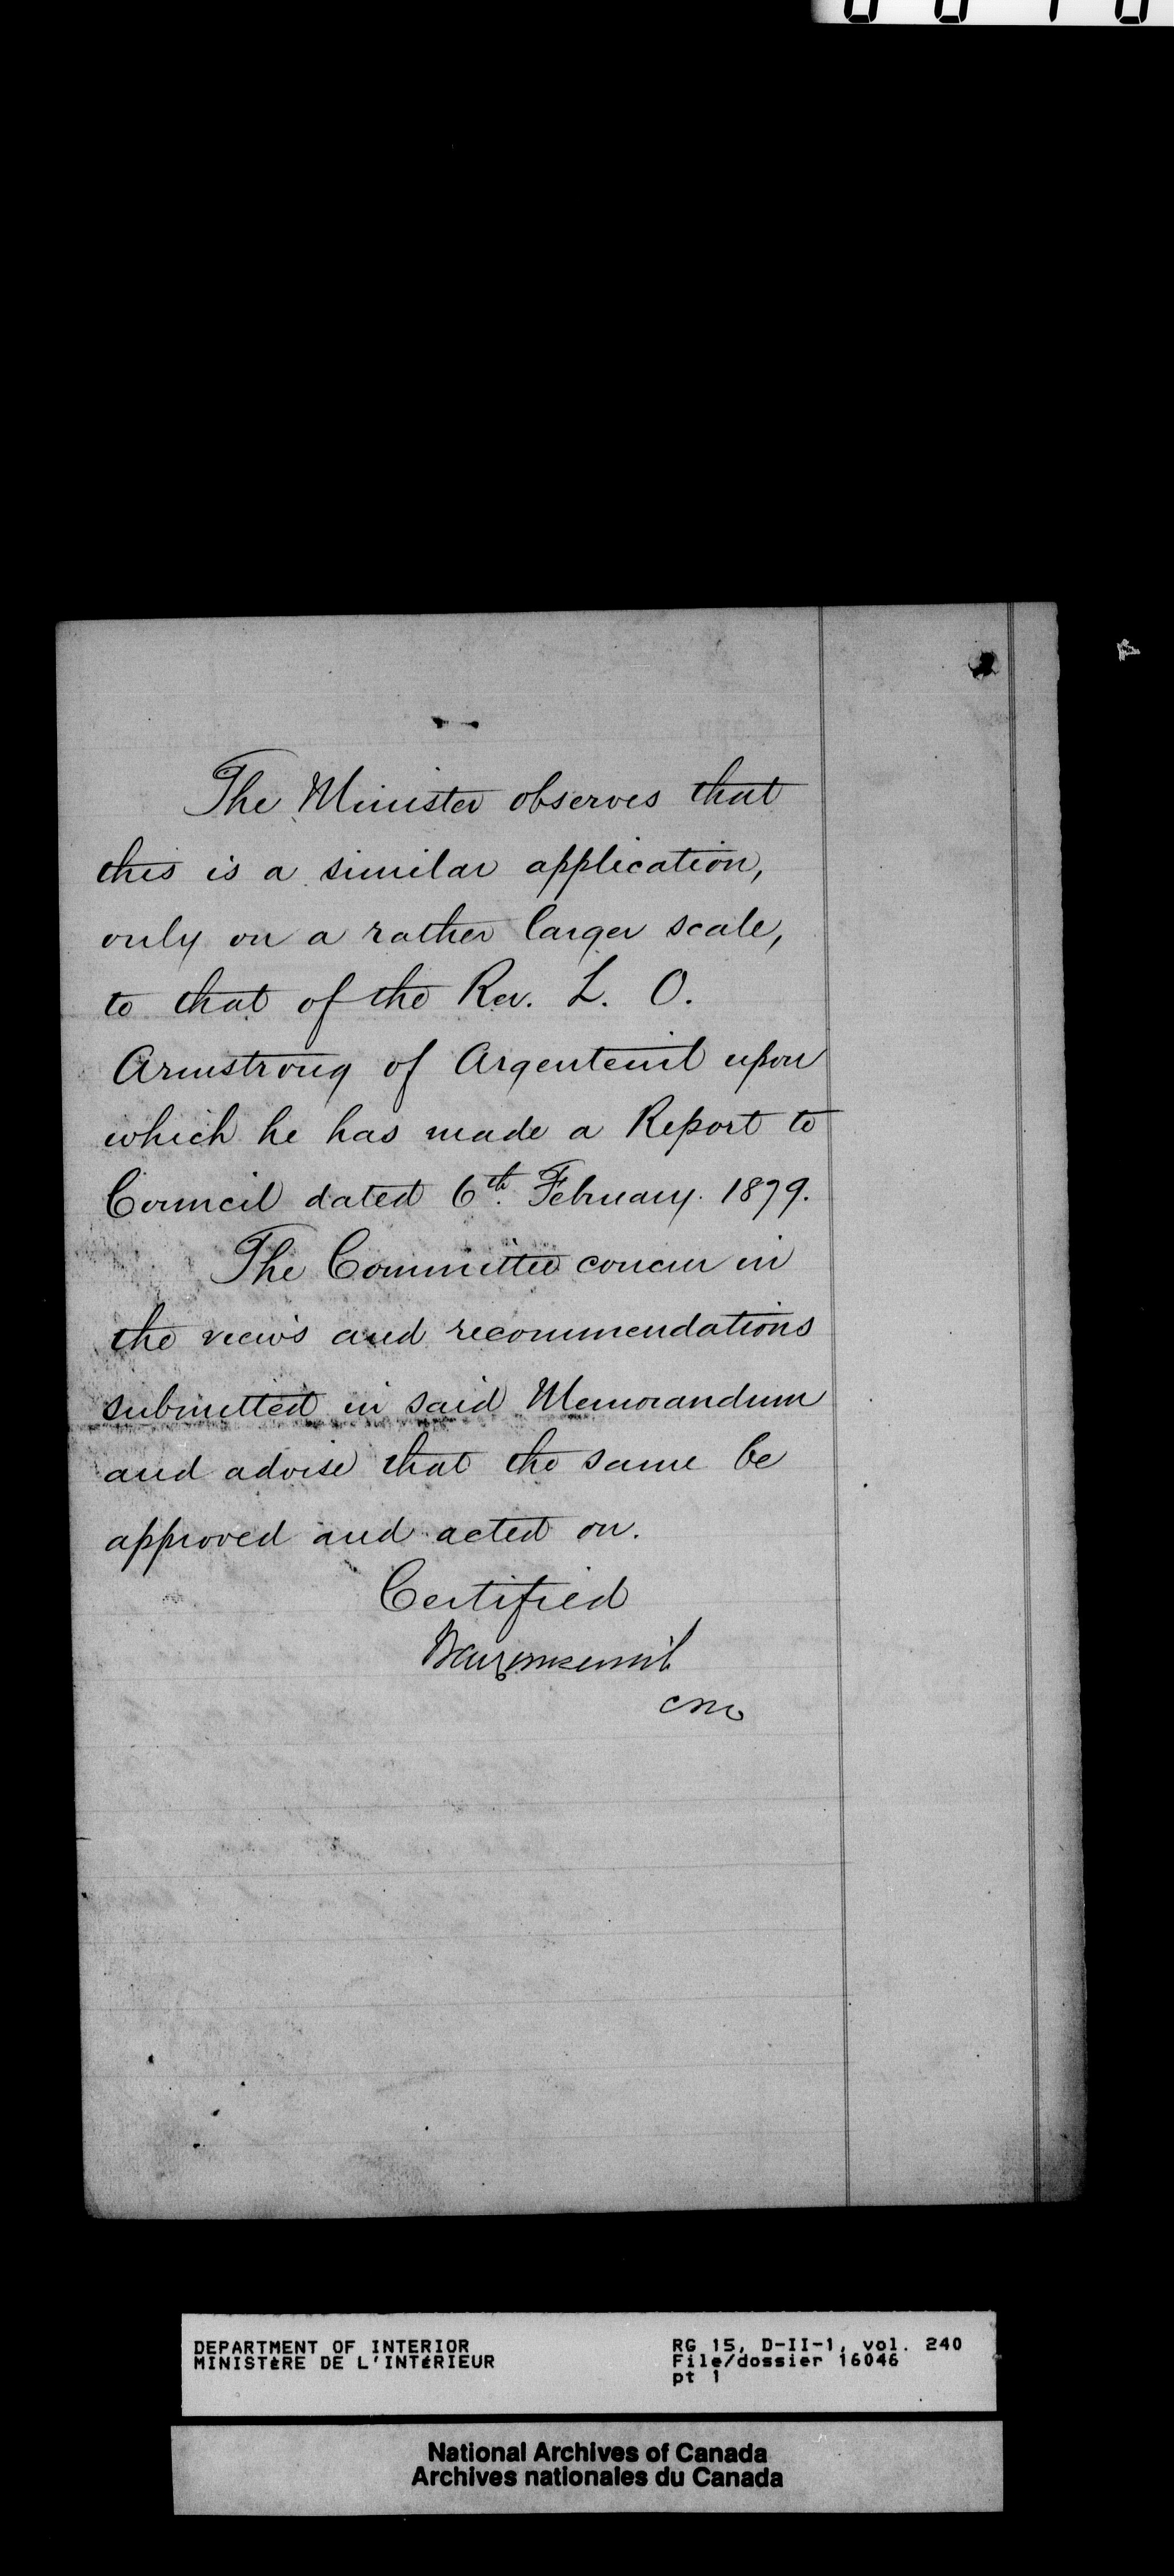 The Minister observes that
this is a similar application,
only on a rather larger scale,
to that of the Rev. L. O.
Armstrong of Argenteuil upon
which he has made a Report to
Council dated 6th. February. 1879.
The Committee concur in
the views and recommendations
submitted in said Memorandum
and advise that the same be
approved and acted on.
Certified
DEPARTMENT OF INTERIOR
MINISTèRE DE L'INTéRIEUR
RG 15, D-II-1, vol. 240
File/dossier 16046
pt 1
National Archives of Canada
Archives nationales du Canada